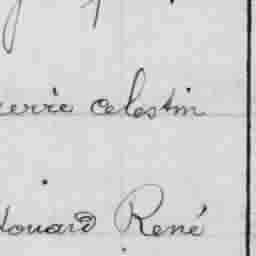 ierre Celestin
douard René